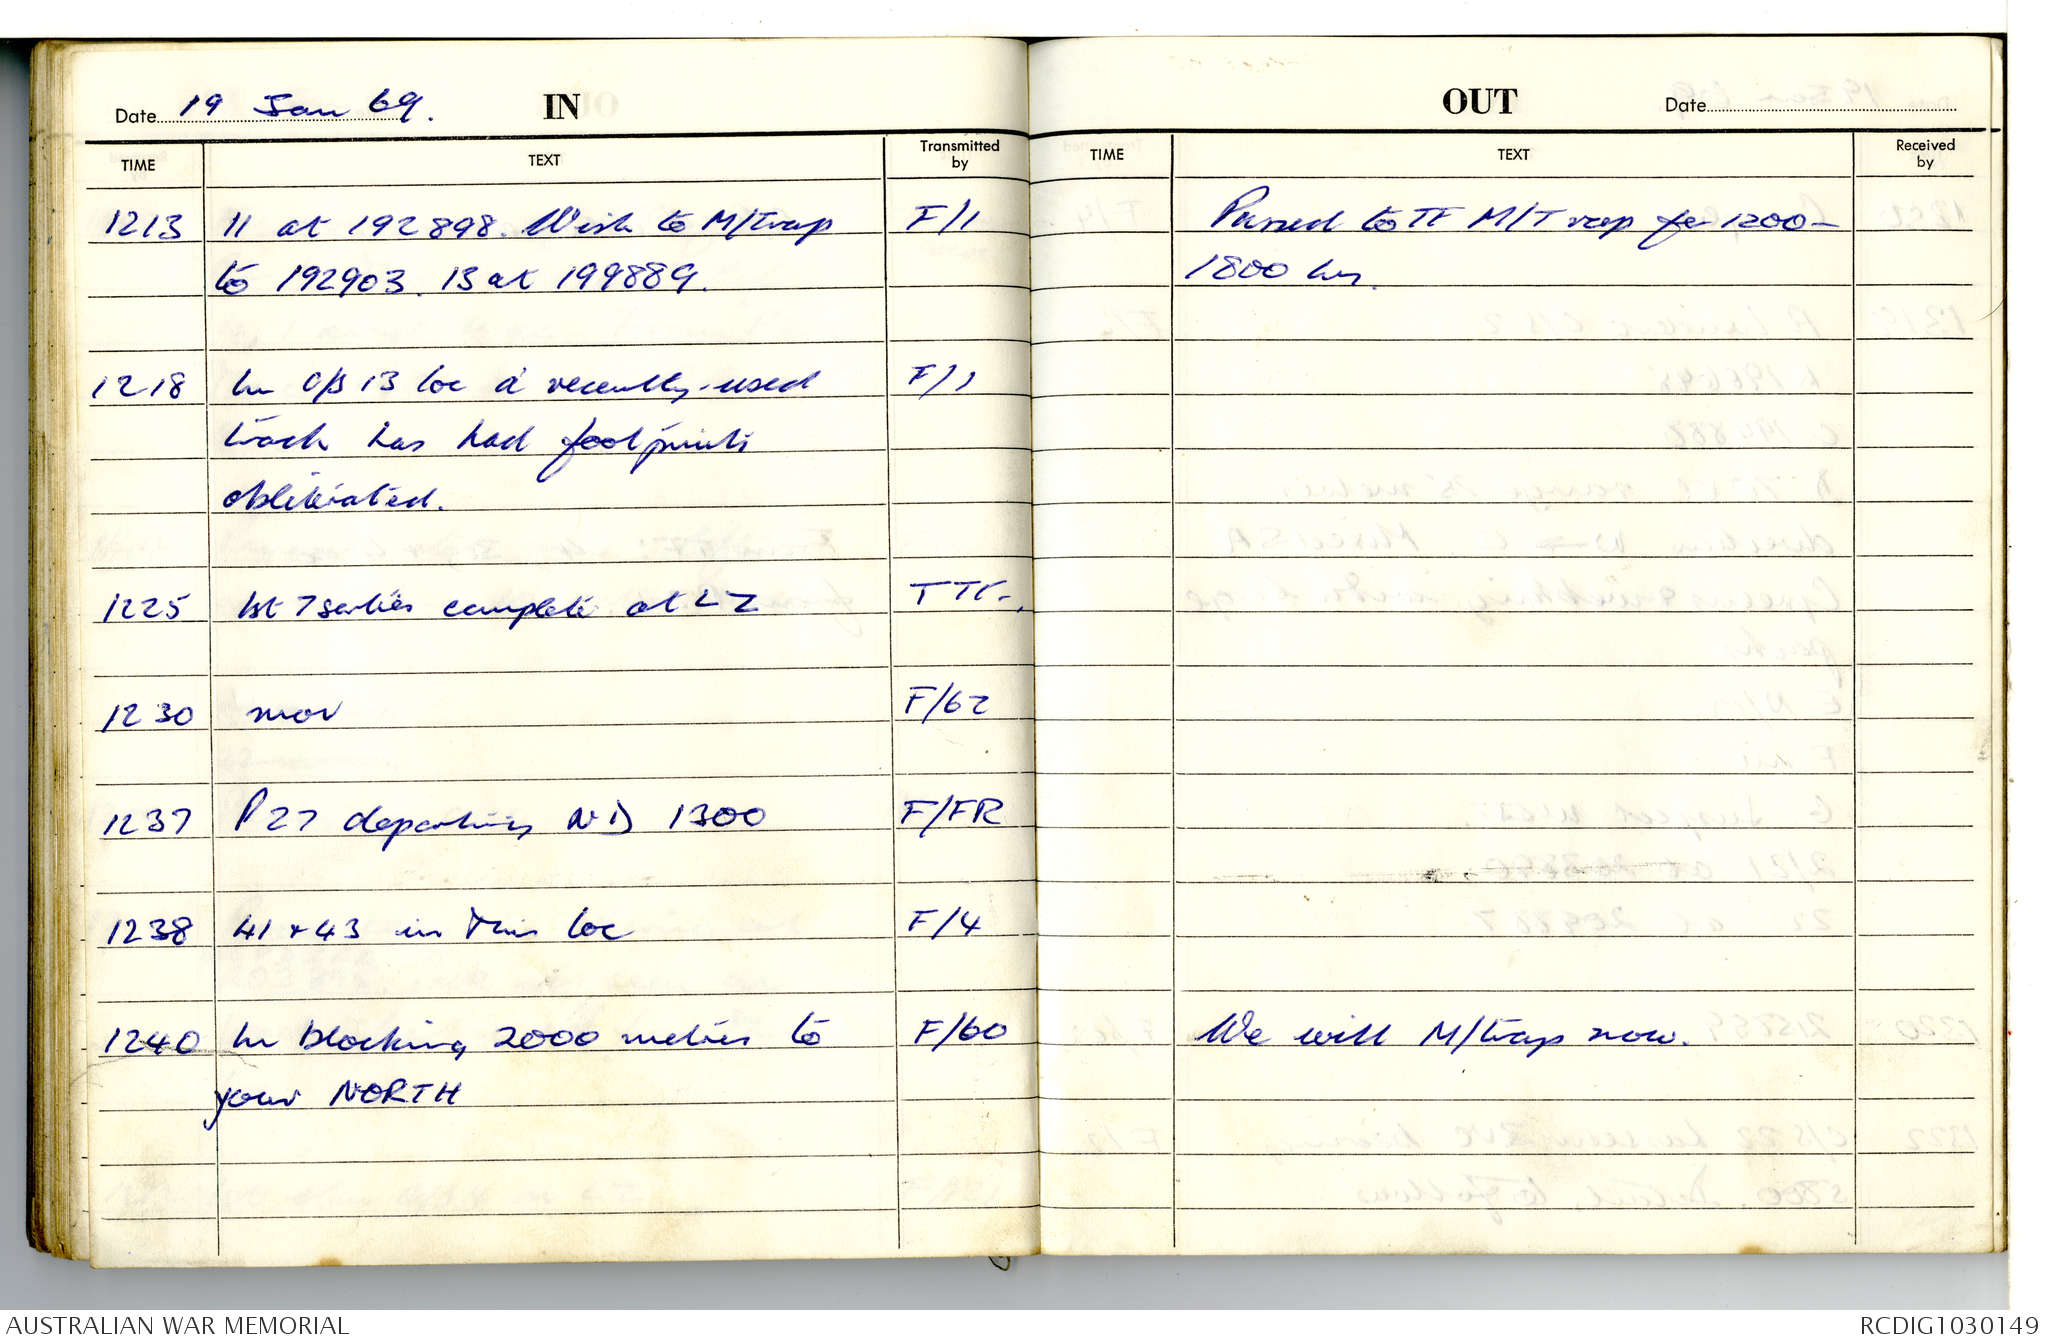 Date 19 Jan 69. IN
TIME TEXT Transmitted by
1213 11 at 192898. Wish to M/Trap F/1
to 192903. 13 at 199889.
1218 In C/S 13 loc a recently used F/1
track has had footprints
obliterated.
1225 1st 7 sorties complete at LZ
1230 mov F/62
1237 P27 departing ND 1300 F/FR
1238 41 + 43 in this loc F/4
1240 In blocking 2000 metres to F/60
your NORTH
OUT Date
TIME TEXT Received by
Passed to TF M/Trap for 1200-
1800 hrs.
We will M/trap now.
AUSTRALIAN WAR MEMORIAL
RCDIG1030149